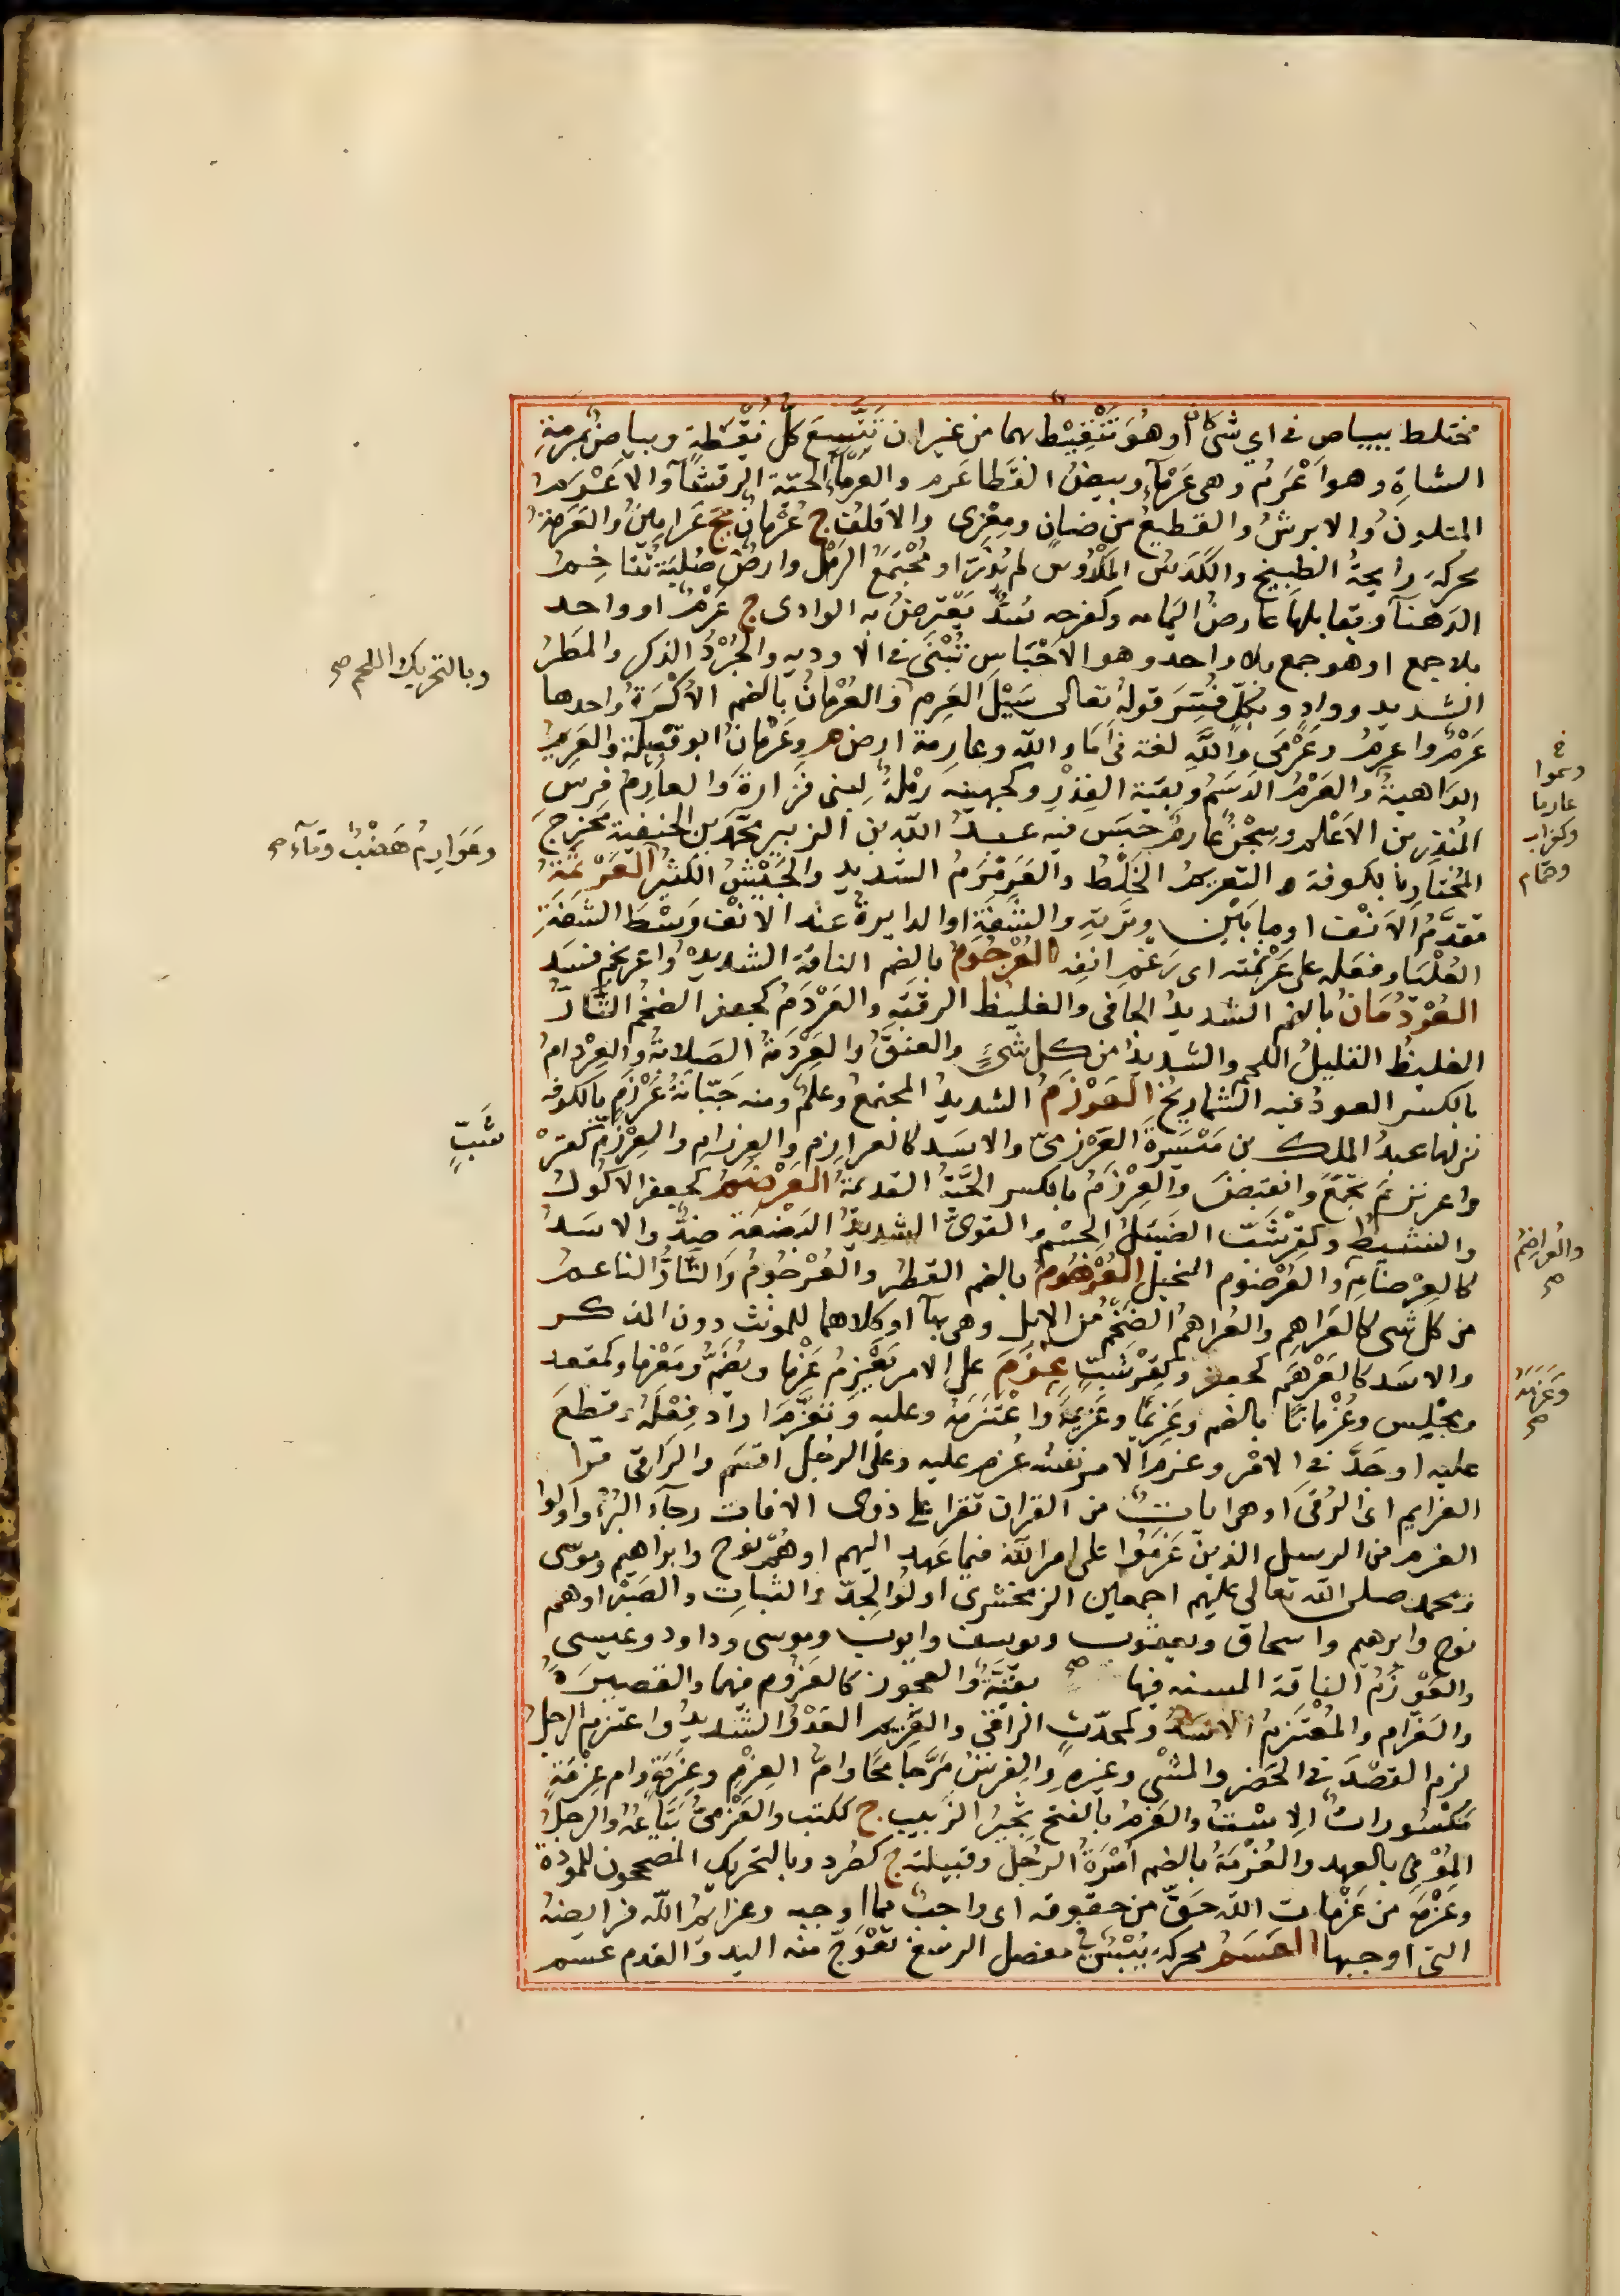 مختلط ببياض في اي شئ كان او هُوَ تَنْقِيْط بهما من غير ان تَتَّسِعَ كلُّ نُقْطَةٍ وبياضٌ بمَرمةِ
الشاةِ وهو اَعْرَمُ وهى عَرْمآءُ وبيضُ القَطا عُرم والعَرْمآءُ الحيّة الرقشآءُ والاَعْرَم
المتلونُ والابرشُ والقطيعُ من ضان ومِعْزى والاَقلفُ ج عُرْمانٌ جج عَرَامِينُ والعَرَمةُ
محركة رايحةُ الطبيخ والكَدَسُ المَدُوسُ لم يُذَرَّ او مُجْتَمَعُ الرمل وارضٌ صُلبَة تُتاخِم
الدهنآءَ ويقابلها عارضُ اليمامه وكفرحه سُدٌّ يُعْترضُ به الوادى ج عَرِمٌ او واحد
بلا جمع او هو جمع بلا واحد وهو الاَحْبَاس تُبْنَى في الاوديه والجُرَذُ الذكر والمَطرُ
الشديد ووادٍ وبكلٍّ فُسِّرَ قولهُ تعالى سَيْلَ العَرِمِ والعُرْمَانُ بالضم الاَكَرَةُ واحدها
عَرْمٌ واعرم وعَرْمَى واللّهِ لغة في اَمَا والله وعارمة ارض م وعَرْمَانُ ابو قبيلة والعَرِيم
الداهيةُ والعَرْمُ الدَسَمُ وبقيّة القِدْرِ وكجهينه رَمْلَةٌ لبنى فَزَارةَ والعارِمُ فرس
المُنْذِر بن الاَعْلم وسِجْنُ عارم حَبَس فيه عبدُ الله بن الزبير محمّد بن الحنفية خرج
المختار بالكوفة و التعريم الخَلْطُ والعَرَمْرَمُ الشديد والجَيْشُ الكثير العَرْتَمَةُ
مقدَّمُ الاَنْف او ما بَيْنَ وتَرتِهِ والشَفَةِ او الدايرةُ عند الانْف وَسَطَ الشَفةِ
العُلْيا وفعله على عَرْتَمَته اى رَغْمِ انفِه العُرْجُومُ بالضم الناقة الشديدةُ واعرنجم فسَد
العُرْدُمَانُ بالضم الشديدُ الجافى والغليظ الرقبَةِ والعَرْدَمُ كجعفر الضخمُ التّارُّ
الغليظُ القليلُ اللحم والشديدُ من كل شئٍ والعنقُ والعَرْدَمَةُ الصَلابةُ والعِرْدامُ
بالكسر العودُ فيه الشماريخُ العَرْزَمُ الشديدُ المجتمعُ وعلمٌ ومنه جَبَّانَةُ عَرْزَمٍ بالكوفه
نزلها عبدُ الملك بن مَيْسَرةَ العَرْزمىّ والاسَد كالعرازِم والعِرزام والعِرْزَمّ كقِرْ
واعرنزَمَ تجمَّعَ وانقبضَ والعِرْزِمُ بالكسر الحَيَّةُ القديمَةُ العَرْصَمُ كجعفر الاكول
والنشيطُ وكقِرْشَبّ الضئيلُ الجسم والقوىُّ الشديدُ البَضْعَة ضِدٌّ والاسَد
كالعِرْصامِ والعُرْصوم البخيل العُرْهُوم بالضم القطر والعُرْجُومُ والتَّارُّ الناعم
من كل شى كالعَرَاهِم والعُراهِم الضَخْمُ من الابل وهى بهآ او كلاهما للمونث دون المذكر
والاسَد كالعَرْهَم كجعفر وكقِرْشَبّ عزَمَ على الامر يَعْزِمُ عَزْما ويُضَمُّ ومَعْزَما وكمقعد
ومجْلِس وعُزْمانًا بالضم وعَزِيمًا وعَزِيمَةً واعْتَزَمَهُ وعليه وتعَزَّمَ اراد فِعْلَهُ وقطعَ
عليه او جَدَّ في الاَمْر وعزم الامر نفسُه عُزِم عليه وعلى الرجُل اقسَم والراقى قرا
العزايم اى الرُقَى او هى اياتٌ من القران تقرا على ذوى الافات رجآءَ البُرْء واولوا
العزم من الرسل الذين عَزَمُوا على امر الله فيما عَهِد اليهم او هُمْ نوح وابراهيم وموسى
ومحمد صلى الله تعالى عليهم اجمعين الزمخشرى اولُوا الجِدّ والثبات والصَبْر او هم
نوح وابرهيم واسحاق ويعقوب ويوسف وايوب وموسى وداود وعيسى
والعَوْزَمُ الناقة المسنه فيها بقيَّةٌ والعجوز كالعَزُوم فيهما والقصيرَةُ
والعَزّام والمُعْتَزِمُ الاسَدُ وكمحدّث الراقى والعَزِيم العَدْوُ الشديدُ واعتزم الرجلُ
لزم القصْدَ في الحُضرِ والمشْى وغيرِه والفرَسُ مَرَّ جامحًا وامّ العِزْمِ وعِزْمَة وام عِزْمَةٍ
مكسورات الاِسْتُ والعَزم بالفتح ثجيرُ الزبيب ج ككتب والعَزْمىُّ بَيَّاعُهُ والرجل
المُوْفى بالعهد والعُزْمَةُ بالضم اُسْرَةُ الرجل وقبيلته ج كصُرد وبالتحريك المصححون للمودة
وعَزْمَة من عَزْمات الله حَقّ من حقوقه اى واجب مما اوجبه وعزايمُ الله فرايضه
التى اوجبها العَسَمُ محركة يُبْسٌ في مفصل الرسغ تعْوَجّ منه اليد والقدم عسم
وبالتحريك اللحم صح
وعَوَارِمُ هَضْبٌ ومآء صح
شَبّ
وسموا
عارما
وكغراب
وهمام
والعُراصِم
صح
وعَزَمَة
صح